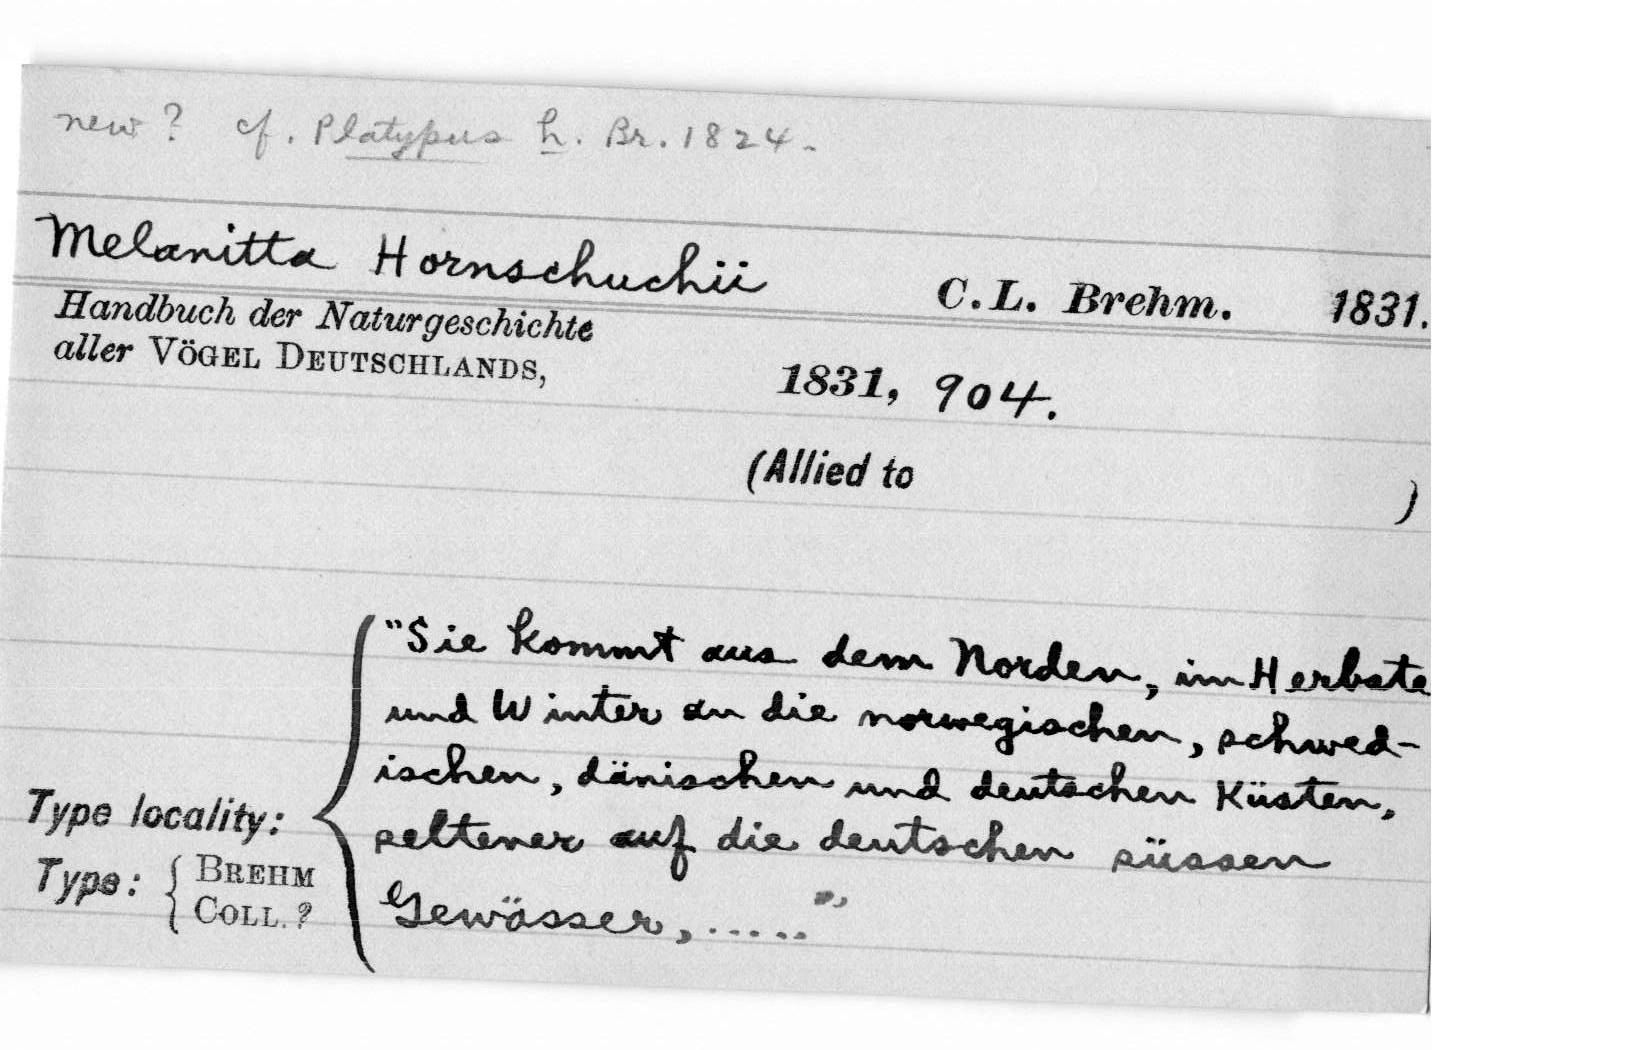 new? cf. Platypus h. Br. 1824.
Melanitta Hornschuchii C. L. Brehm. 1831.
Handbuch der Naturgeschichte
aller VÖGEL DEUTSCHLANDS, 1831, 904.
(Allied to )
"Sie kommt aus dem Norden, im Herbste
und Winter an die norwegischen, schwed-
ischen, dänischen und deutschen Küsten,
seltener auf die deutschen süssen
Gewässer, ....."
Type locality:
Type: { BREHM
COLL. ?